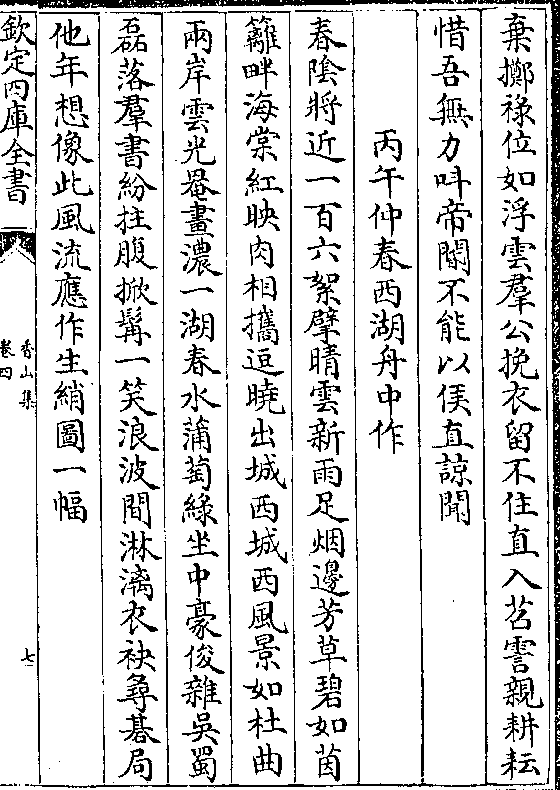 棄擲祿位如浮雲羣公挽衣留不住直入苕霅親耕耘
惜吾無力呌帝閽不能以俟直諒聞
丙午仲春西湖舟中作
春陰將近一百六絮擘晴雲新雨足烟邊芳草碧如茵
籬畔海棠紅映肉相攜逗曉出城西城西風景如杜曲
兩岸雲光罨畫濃一湖春水蒲萄綠坐中豪俊雜吳蜀
磊落羣書紛拄腹掀髯一笑浪波間淋漓衣袂尋棊局
他年想像此風流應作生綃圖一幅
欽定四庫全書
香山集
卷四
七